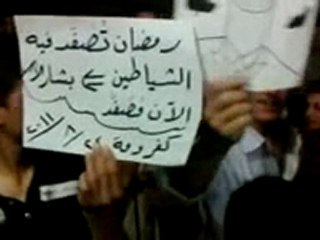 رمضان تُصفّد فيه
الشياطين بشار
الآن مصفد
كفرومة